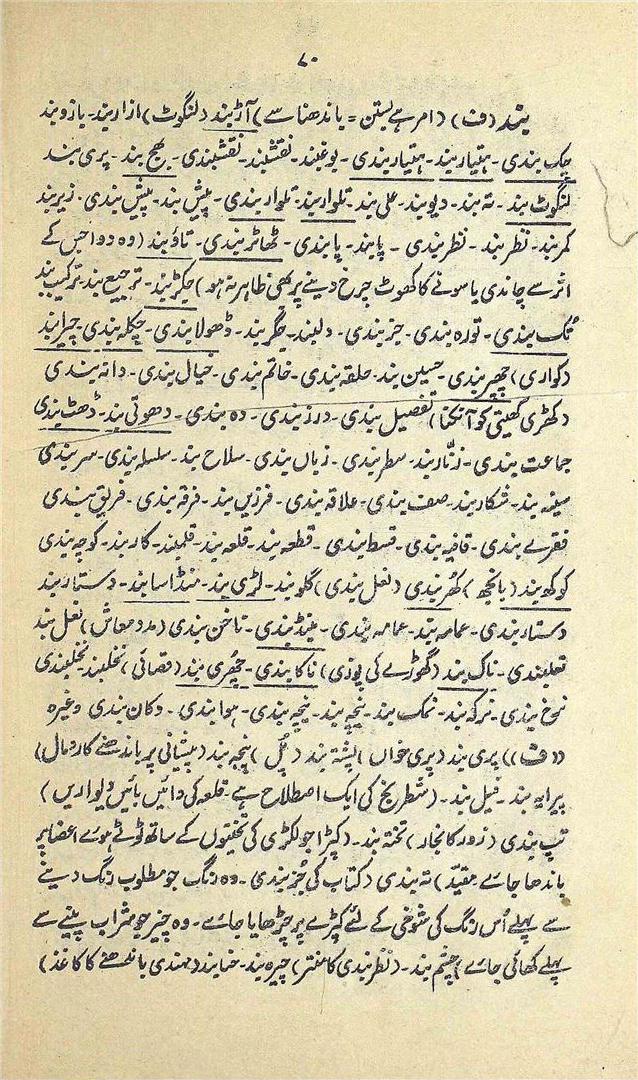 ۷۰
بند (ف) (امر ہے بستن = باندھنا سے) آڑبند (لنگوٹ) ازاربند۔ بازوبند
چک بندی۔ ہتیاربند۔ ہتیاربندی۔ بوبند۔ نقشبند۔ نقشبندی۔ بھج بند۔ پری بند
لنگوٹ بند۔ تہ بند۔ دیوبند۔ علی بند۔ تلواربند۔ تلواربندی۔ پیش بند۔ پیش بندی۔ زیربند
کمربند۔ نظربند۔ نظربندی۔ پابند۔ پابندی۔ ٹھاٹربندی۔ تاؤبند (وہ دوا جس کے
اثر سے چاندی یا سونے کا کھوٹ چرخ دینے پر بھی ظاہر نہ ہو) جکڑبند۔ ترجیع بند۔ ترکیب بند
تُک بندی۔ تورہ بندی۔ جزبندی۔ دلبند۔ جگربند۔ ڈھولابندی۔ چکلہ بندی۔ چیرابند
(کواری) چھپربندی۔ حسین بند۔ حلقہ بندی۔ خاتم بندی۔ خیال بندی۔ دانہ بندی
(کھڑی کھیتی کو آنکنا) تفصیل بندی۔ درزبندی۔ دہ بندی۔ دھوتی بند۔ ڈھٹ بندی
جماعت بندی۔ زنّاربند۔ سطربندی۔ زباں بندی۔ سلاح بند۔ سلسلہ بندی۔ سربندی
سینہ بند۔ شکاربند۔ صف بندی۔ علاقہ بندی۔ فرزیں بند۔ فرقہ بندی۔ فریق بندی
فقرے بندی۔ قافیہ بندی۔ قسط بندی۔ قطعہ بند۔ قلعہ بند۔ قلمبند۔ کاربند۔ کوچہ بندی
کوکھ بند (بانجھ) کُھربندی (نعل بندی) گلوبند۔ لڑی بند۔ منڈاسابند۔ دستاربند
دستاربندی۔ عمامہ بند۔ عمامہ بندی۔ مینڈبندی۔ ناخن بندی (مدد معاش) نعل بند
نعلبندی۔ ناک بند (گھوڑے کی پوزی) ناکا بندی۔ چھری بند (قصائی) نخلبند۔ نخلبندی
نرخ بندی۔ نرکہ بند۔ نمک بند۔ نیچہ بند۔ نیچہ بندی۔ ہوابندی۔ دکان بندی وغیرہ
((ف)) پری بند (پری خواں) پشتہ بند (پُل) پنجہ بند (پیشانی پر باندھنے کا رومال)
پیرایہ بند۔ فیل بند۔ (شطرنج کی ایک اصطلاح ہے۔ قلعہ کی دائیں بائیں دیواریں)
تپ بندی (زور کا بخار) تختہ بند۔ (کپڑا جو لکڑی کی تختیوں کے ساتھ ٹوٹے ہوئے اعضا پر
باندھا جائے۔ مقیّد) تہ بندی (کتاب کی جُزبندی۔ وہ رنگ جو مطلوب رنگ دینے
سے پہلے اُس رنگ کی شوخی کے لئے کپڑے پر چڑھایا جائے۔ وہ چیز جو شراب پینے سے
پہلے کھائی جائے) چشم بند۔ (نظربندی کا منتر) چیرہ بند۔ حنابند (مہندی باندھنے کا کاغذ)